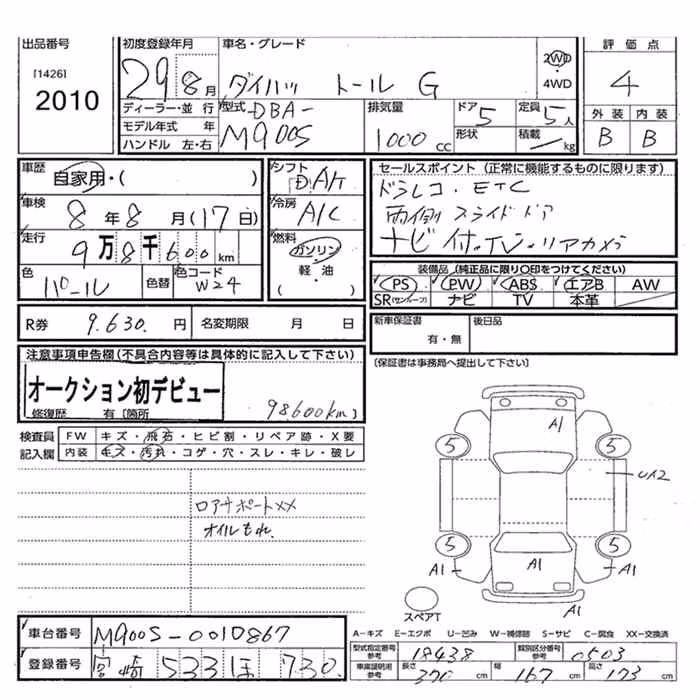 出品番号 初度登録年月 車名・グレード 評価点
[1426] 2010
29 8月 ダイハツ トール G 2WD ・4WD 4
ディーラー・並 行 型式 DBA- 排気量 ドア 5 定員 5人 外装 内装
モデル年式 年 M900S 1000CC 形状 積載 kg B B
ハンドル 左・右
車歴 自家用・( ) シフト DA/T セールスポイント (正常に機能するものに限ります)
車検 8年8月(17日) 冷房 A/C ドラレコ・ETC
両側スライドドア
走行 9万8千600km 燃料 ガソリン・軽・油( ) ナビ付・TV・リアカメラ
色 パール 色替 色コード W24 装備品 (純正品に限り○印をつけてください)
PS PW ABS エアB AW
SR(サンルーフ) ナビ TV 本革
R券 9.630.円 名変期限 月 日 新車保証書 有・無 後日品
注意事項申告欄(不具合内容等は具体的に記入して下さい) [保証書は事務局へ提出して下さい]
オークション初デビュー
修復歴 有〔箇所 98600km)
検査員 FW キズ・飛石・ヒビ割・リペア跡・X要
記入欄 内装 キズ・汚れ・コゲ・穴・スレ・キレ・破レ
ロアサポートXX
オイルもれ.
A1
5 5
UX2
5 5
A1 A1 A1
A1
スペアT
車台番号 M900S-0010867
登録番号 宮崎 533 ほ 730
A-キズ E-エクボ U-凹み W-補修跡 S-サビ C-腐食 XX-交換済
型式指定番号 参考 18438 類別区分番号 参考 0503
車庫証明用 参考 長さ 370cm 幅 167cm 高さ 173cm